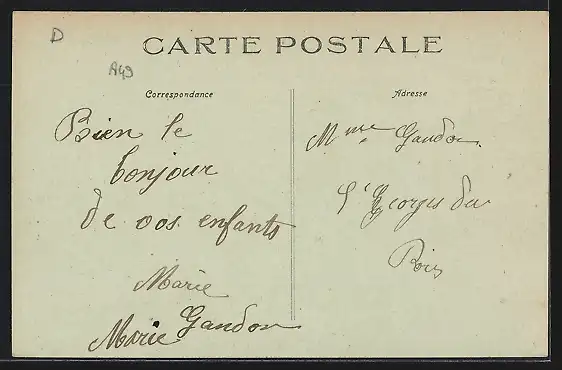 D
CARTE POSTALE
A49
Correspondance
Bien le
bonjour
de vos enfants
Marie
Marie Gandon
Adresse
Mme Gandon
St Georges du
Bois